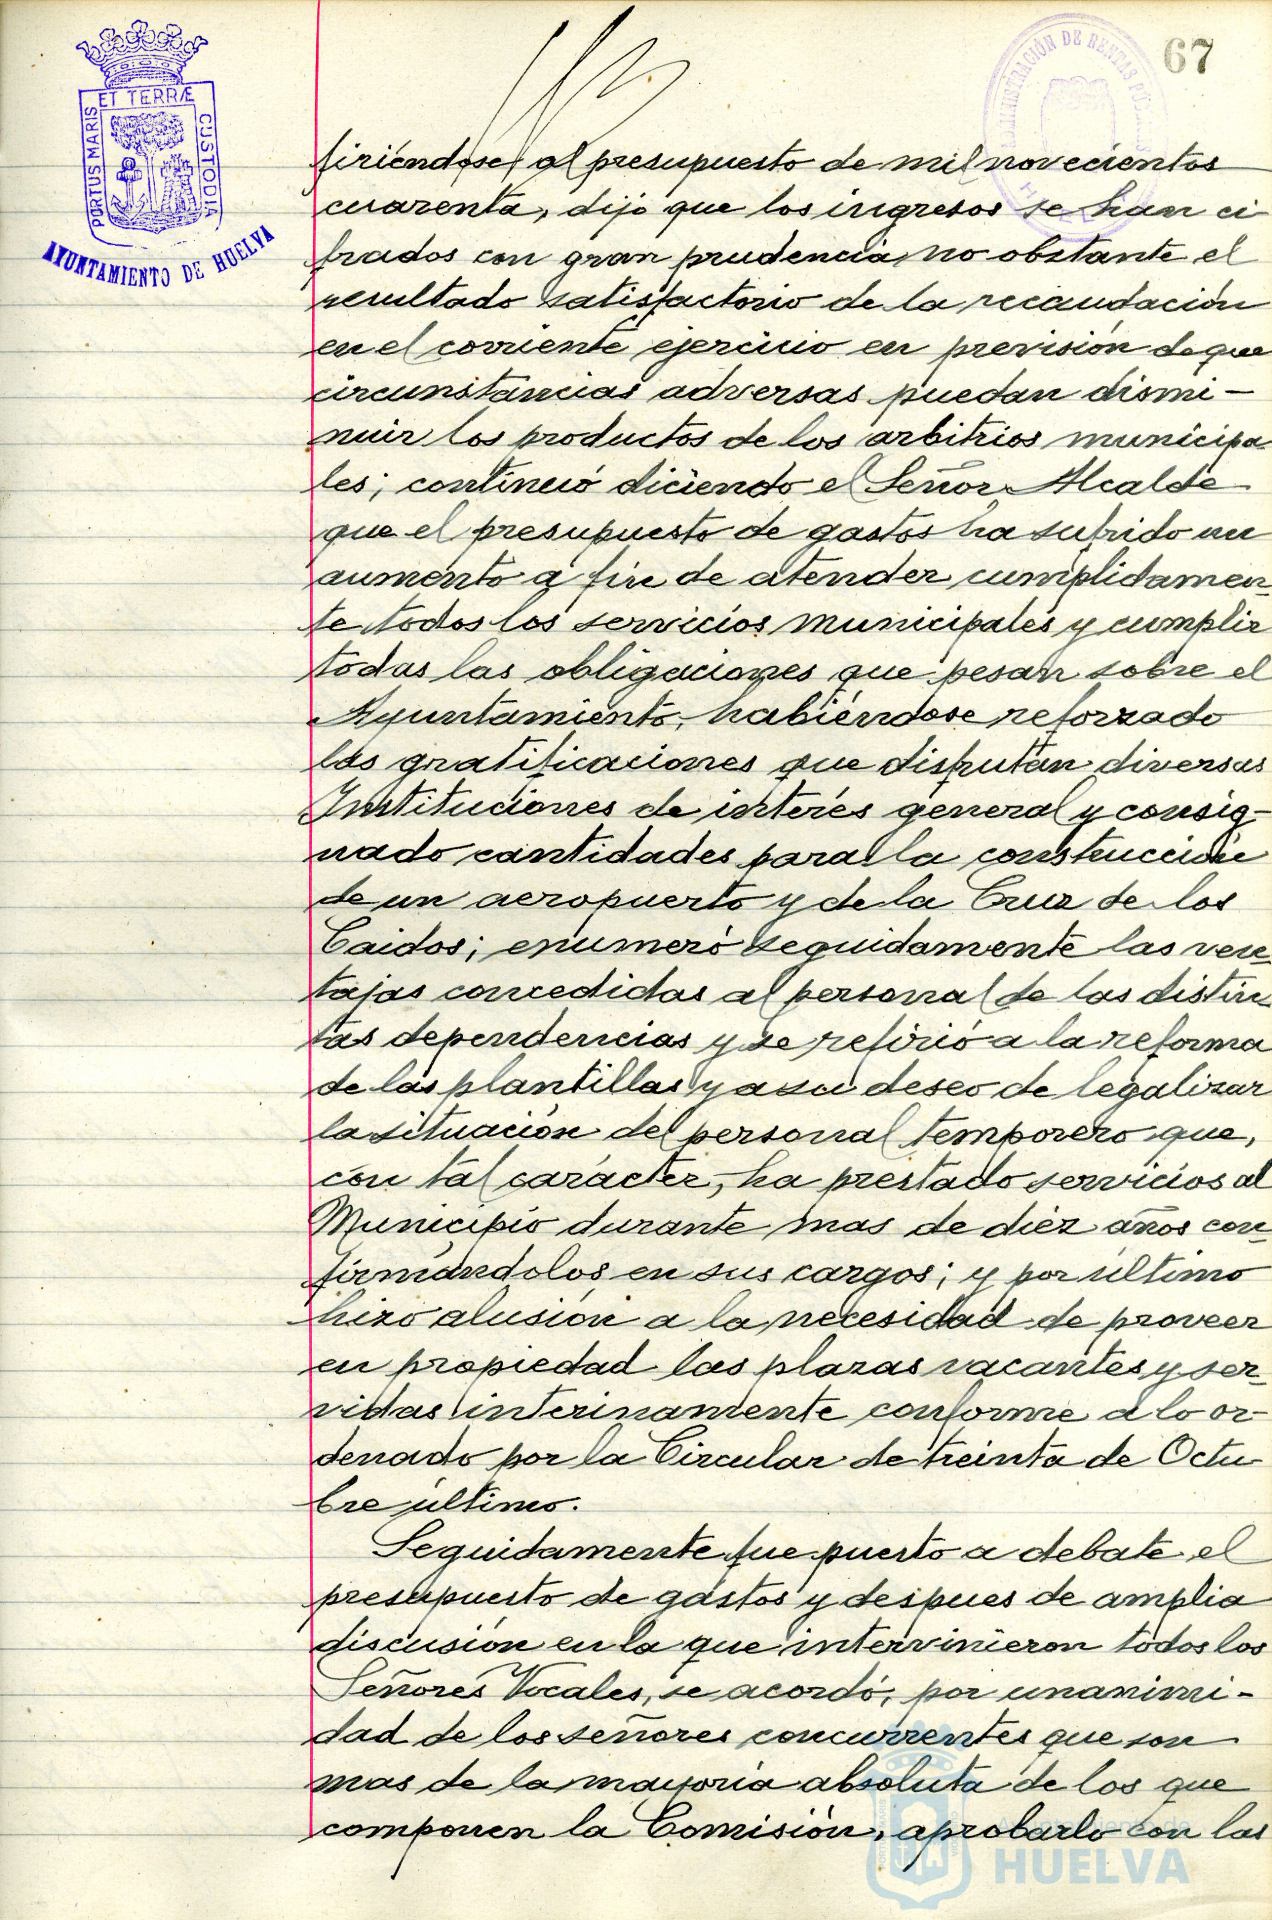 67
ADMINISTRACIÓN DE RENTAS PÚBLICAS
ET TERRÆ
PORTUS MARIS
CUSTODIA
AYUNTAMIENTO DE HUELVA
firiéndose al presupuesto de mil novecientos
cuarenta, dijo que los ingresos se han ci
frados con gran prudencia, no obstante el
resultado satisfactorio de la recaudación
en el corriente ejercicio en previsión de que
circunstancias adversas puedan dismi-
nuir los productos de los arbitrios municipa
les; continuó diciendo el Señor Alcalde
que el presupuesto de gastos ha sufrido un
aumento a fin de atender cumplidamen-
te todos los servicios municipales y cumplir
todas las obligaciones que pesan sobre el
Ayuntamiento, habiéndose reforzado
las gratificaciones que disfrutan diversas
Instituciones de interés general y consig-
nado cantidades para la construcción
de un aeropuerto y de la Cruz de los
Caidos; enumeró seguidamente las ven-
tajas concedidas al personal de las distin-
tas dependencias y se refirió a la reforma
de las plantillas y a su deseo de legalizar
la situación del personal temporero que,
con tal carácter, ha prestado servicios al
Municipio durante mas de diez años con-
firmándolos en sus cargos; y por último
hizo alusión a la necesidad de proveer
en propiedad las plazas vacantes y ser-
vidas interinamente conforme a lo or-
denado por la Circular de treinta de Octu-
bre último.
Seguidamente fue puesto a debate el
presupuesto de gastos y despues de amplia
discusión en la que intervinieron todos los
Señores Vocales, se acordó, por unanimi-
dad de los señores concurrentes que son
mas de la mayoria absoluta de los que
componen la Comisión, aprobarlo con las
Ayuntamiento de
HUELVA